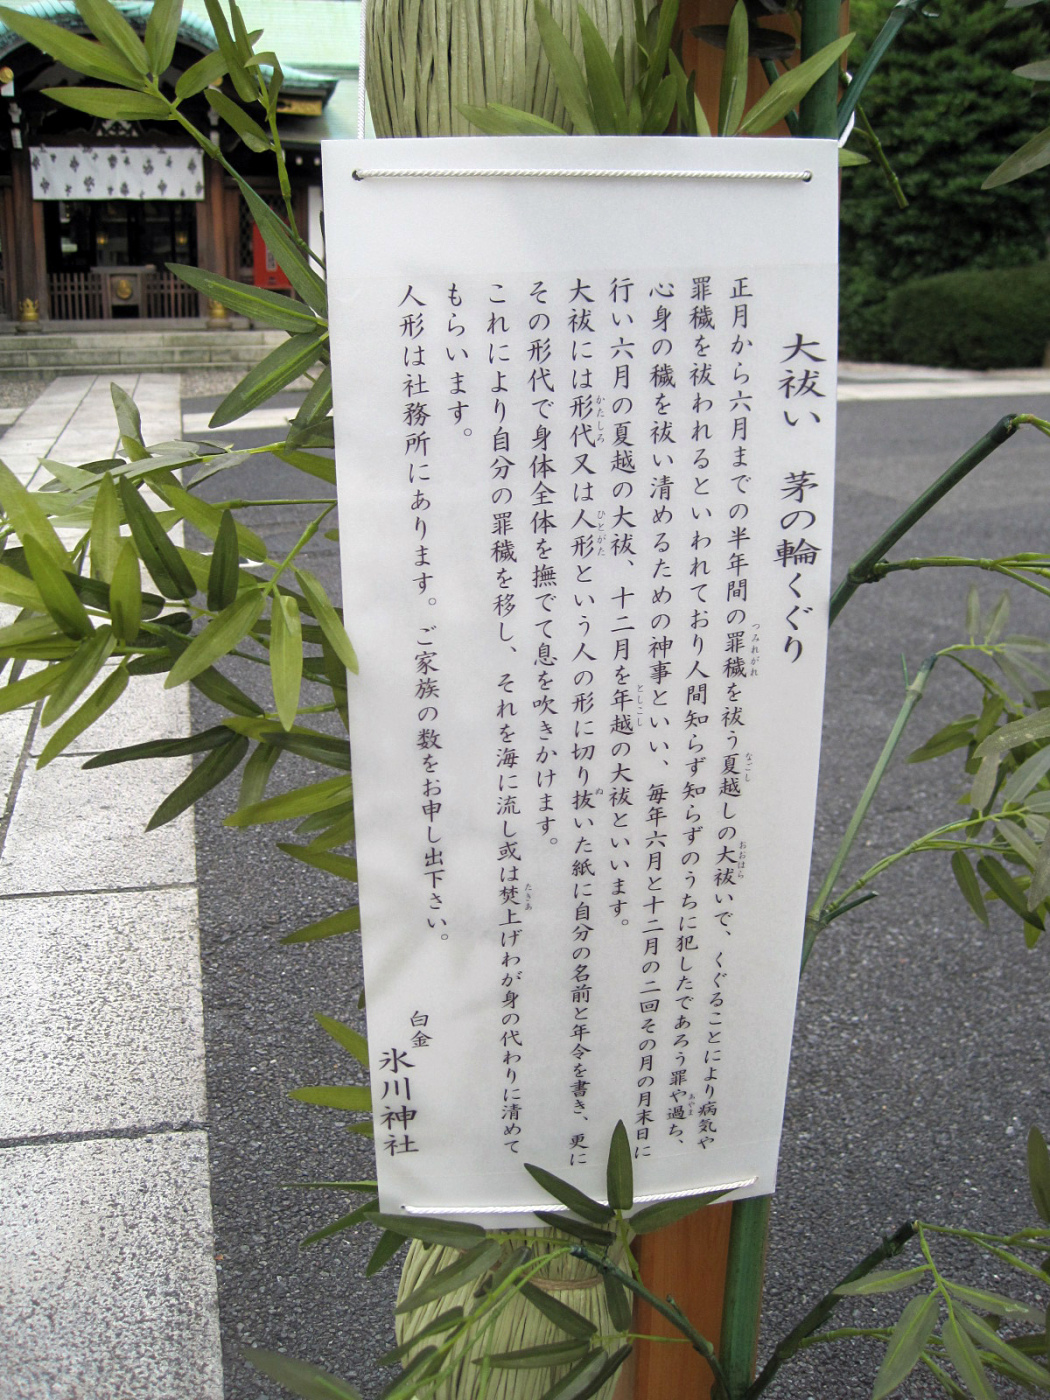 大祓い　茅の輪くぐり
正月から六月までの半年間の罪穢を祓う夏越しの大祓いで、くぐることにより病気や
罪穢を祓われるといわれており人間知らず知らずのうちに犯したであろう罪や過ち、
心身の穢を祓い清めるための神事といい、毎年六月と十二月の二回その月の月末日に
行い六月の夏越の大祓、十二月を年越の大祓といいます。
大祓には形代又は人形という人の形に切り抜いた紙に自分の名前と年令を書き、更に
その形代で身体全体を撫でて息を吹きかけます。
これにより自分の罪穢を移し、それを海に流し或は焚上げわが身の代わりに清めて
もらいます。
人形は社務所にあります。ご家族の数をお申し出下さい。
白金
氷川神社